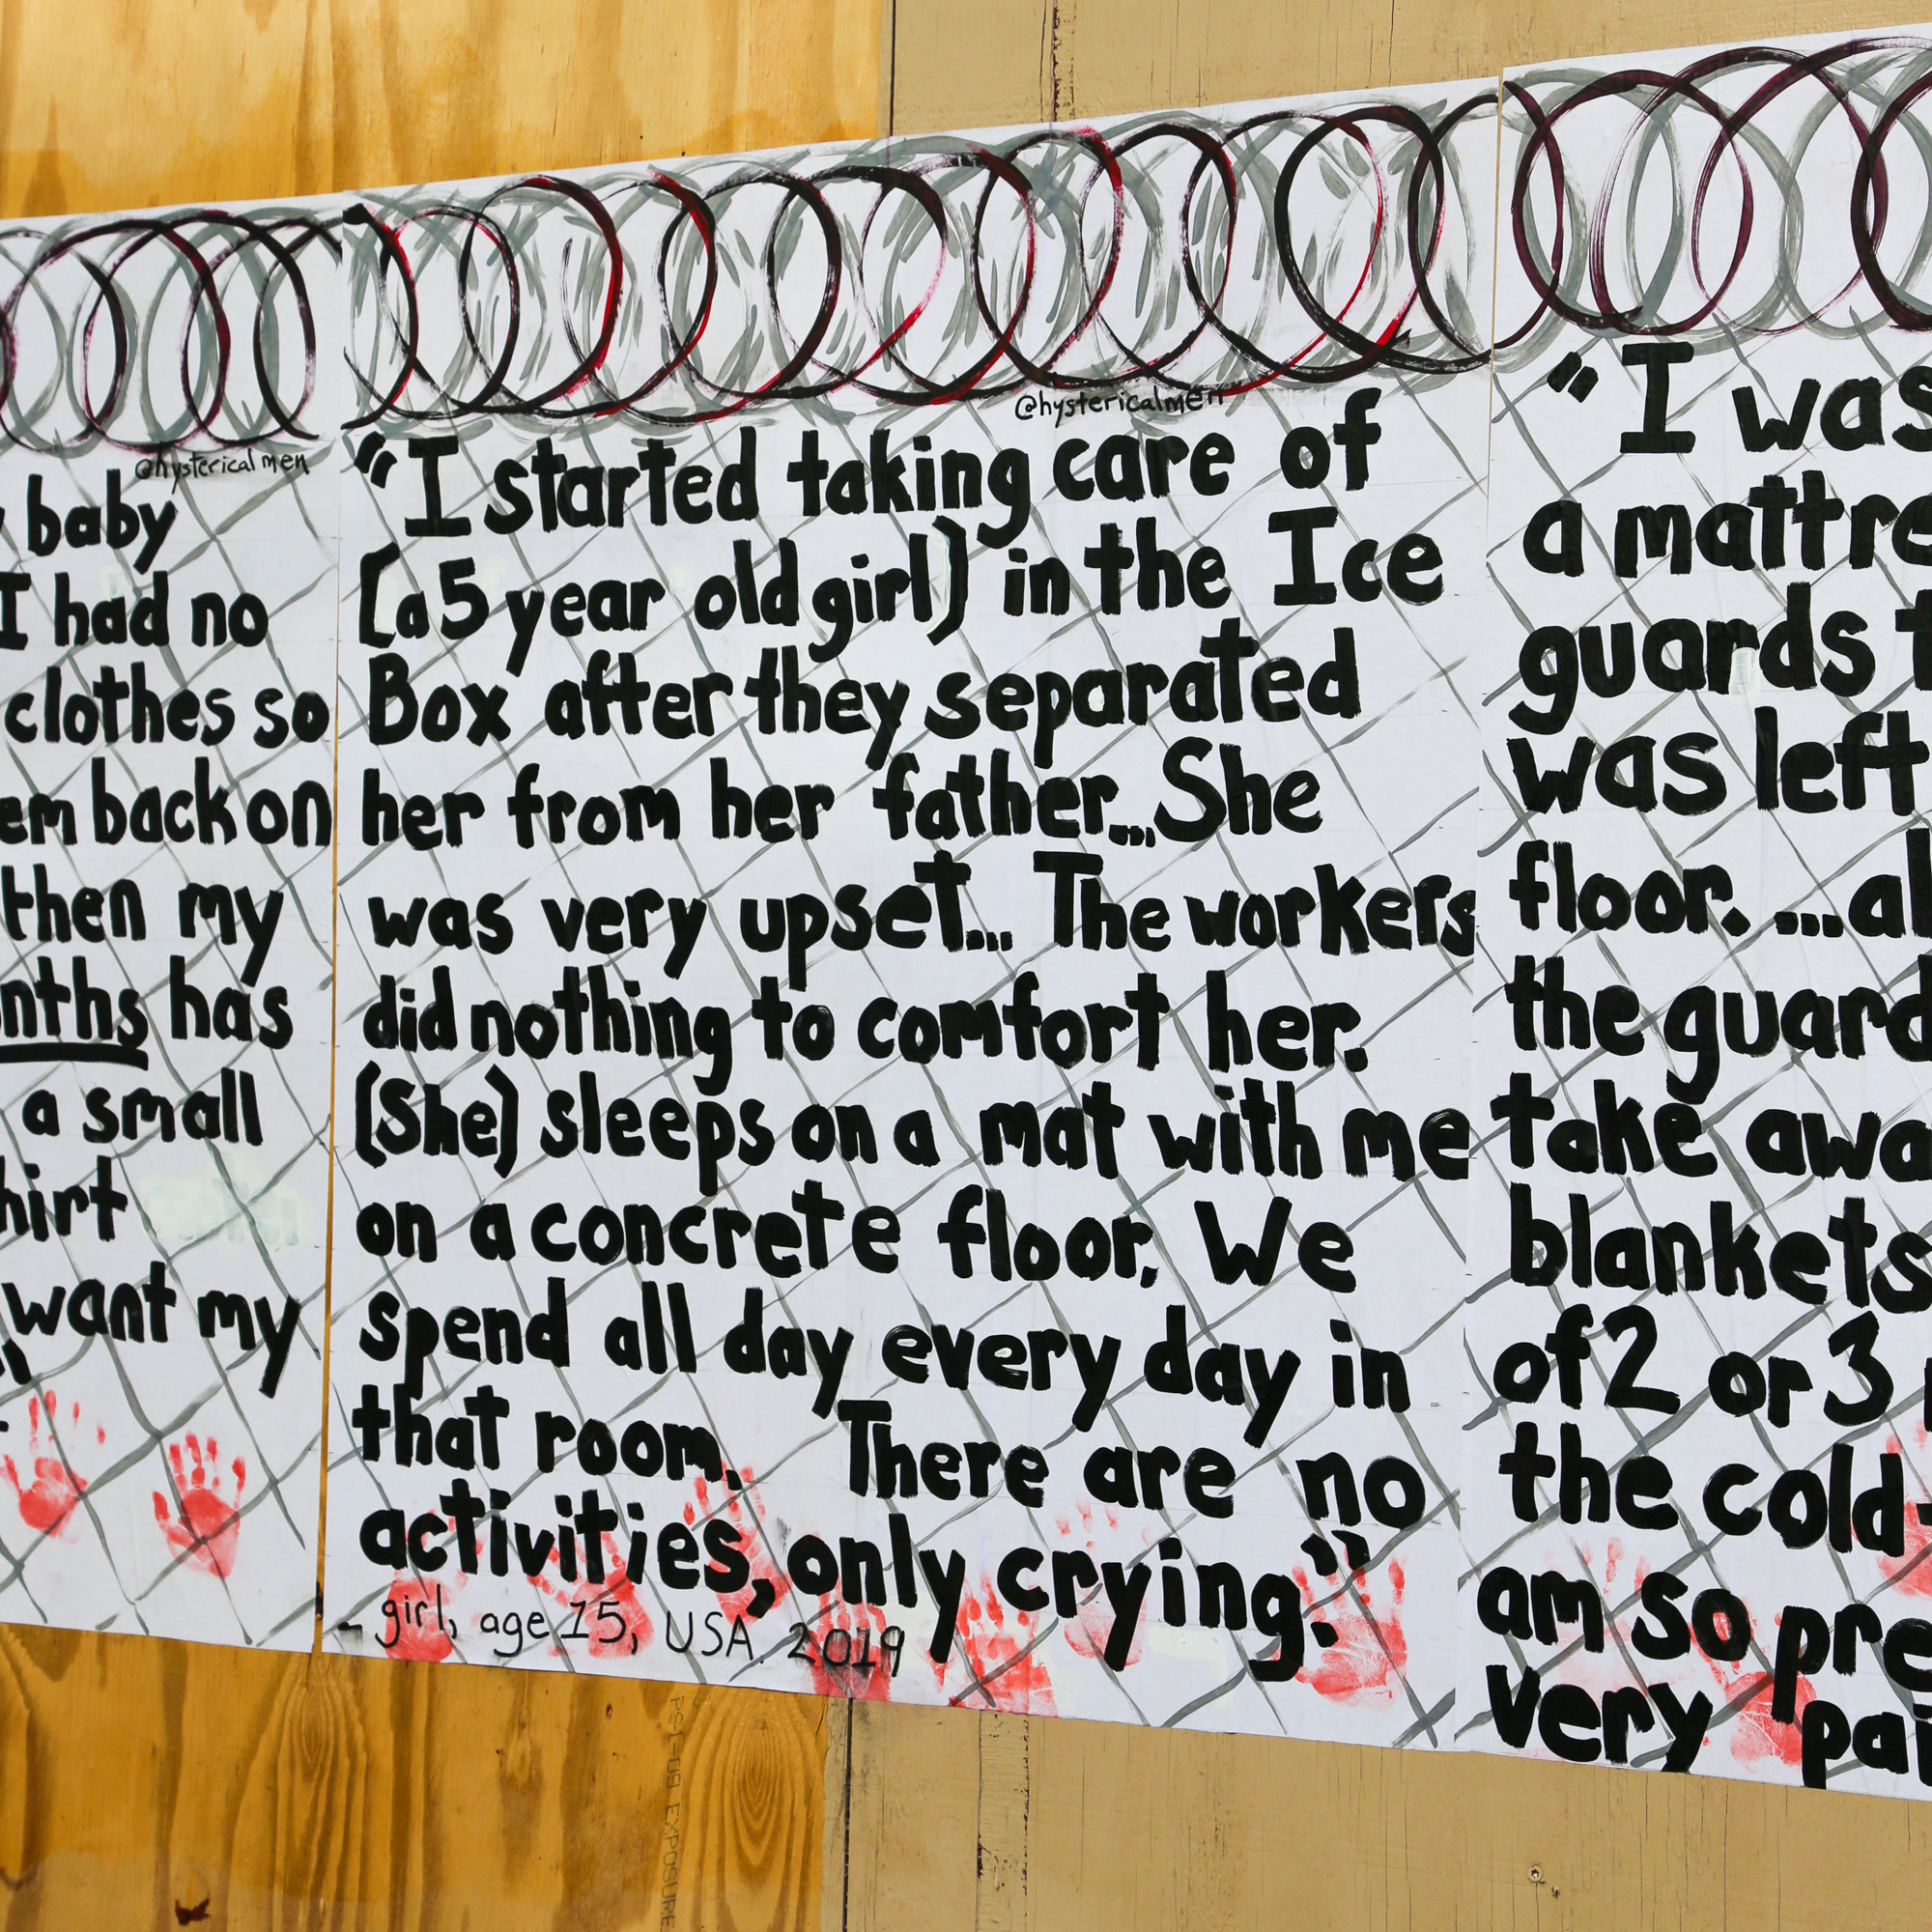 @hysterical men
baby
I had no
clothes so
back on
then my
has
a small
want my
@hystericalmen
"I started taking care of
(a 5 year old girl) in the Ice
Box after they separated
her from her father...She
was very upset... The workers
did nothing to comfort her.
(She) sleeps on a mat with me
on a concrete floor. We
spend all day every day in
that room. There are no
activities, only crying."
- girl, age 15, USA. 2019
"I was
a
guards
was left
floor. ...
the
take
blankets
of 2 or 3
the cold
am so
very
PS1-09 EXPOSURE